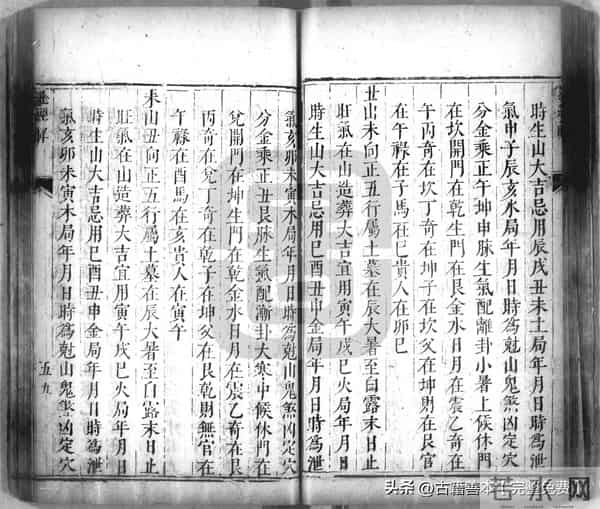 時生山大吉忌用辰戌丑未土局年月日時為泄
氣申子辰亥水局年月日時為尅山鬼煞凶定穴
分金乘正午坤申脉生氣配離卦小暑上候休門
在坎開門在乾生門在艮金水日月在震乙奇在
午丙奇在坎丁奇在坤子在坎父在坤財在艮官
在午祿在子馬在巳貴人在卯巳
丑山未向正五行屬土墓在辰大暑至白露末日止
旺氣在山造葬大吉宜用寅午戌巳火局年月日
時生山大吉忌用巳酉丑申金局年月日時為泄
氣亥卯未寅木局年月日時為尅山鬼煞凶定穴
分金乘正丑艮脉生氣配漸卦大寒中候休門在
兌開門在坤生門在乾金水日月在震乙奇在艮
丙奇在兌丁奇在乾子在坤父在艮乾財無官在
午祿在酉馬在亥貴人在寅午
未山丑向正五行屬土墓在辰大暑至白露末日止
旺氣在山造葬大吉宜用寅午戌巳火局年月日
時生山大吉忌用巳酉丑申金局年月日時為泄
氣亥卯未寅木局年月日時為尅山鬼煞凶定穴
五九
头条 @古籍善本